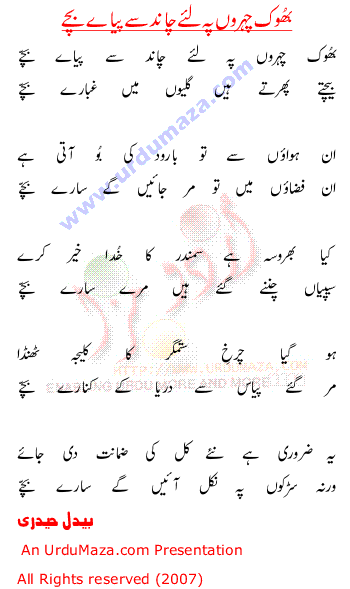 بھُوک چہروں پہ لئے چاند سے پیاے بچے
بھُوک چہروں پہ لئے چاند سے پیاے بچے
بیچتے پھرتے ہیں گلیوں میں غبارے بچے
ان ہواؤں سے تو بارود کی بُو آتی ہے
ان فضاؤں میں تو مر جائیں گے سارے بچے
کیا بھروسہ ہے سمندر کا خُدا خیر کرے
سیپیاں چننے گئے ہیں مرے سارے بچے
ہو گیا چرخِ ستمگر کا کلیجہ ٹھنڈا
مر گئے پیاس سے دریا کے کنارے بچے
یہ ضروری ہے نئے کل کی ضمانت دی جائے
ورنہ سڑکوں پہ نکل آئیں گے سارے بچے
بیدل حیدری
An UrduMaza.com Presentation
All Rights reserved (2007)
www.urdumaza.com
HTTP://WWW.URDUMAZA.COM
ENABLING URDU MORE AND MORE